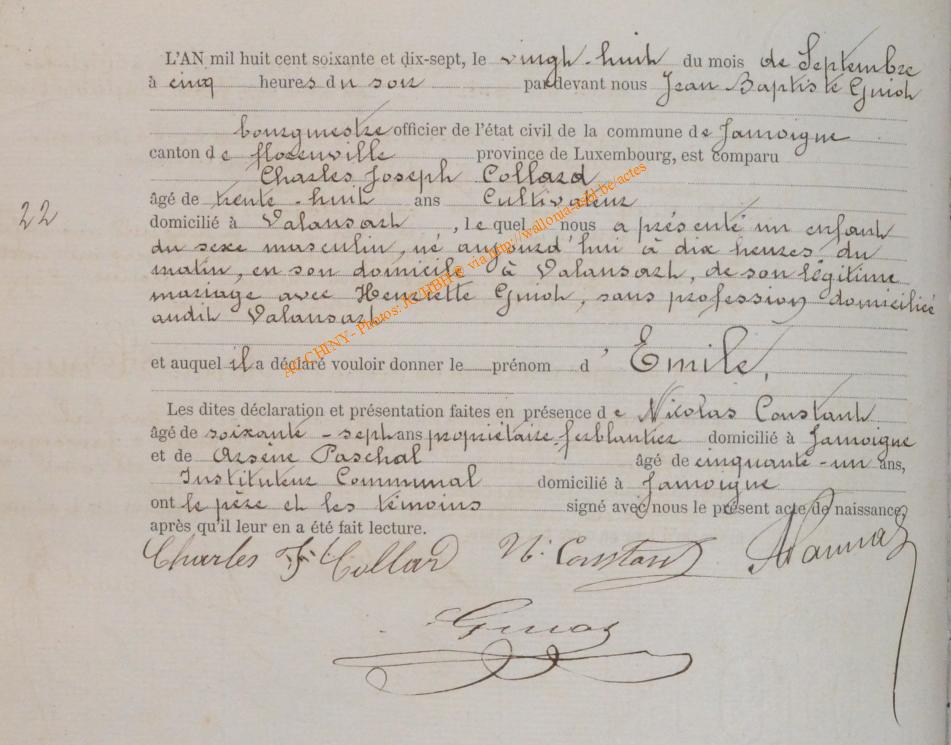 L'AN mil huit cent soixante et dix-sept, le vingt-huit du mois de Septembre
à cinq heures du soir par devant nous Jean Baptiste Guiot
bourgmestre officier de l'état civil de la commune de Jamoigne
canton de florenville province de Luxembourg, est comparu
Charles Joseph Collard
âgé de trente-huit ans Cultivateur
22
domicilié à Valansart, lequel nous a présenté un enfant
du sexe masculin, né aujourd'hui à dix heures du
matin, en son domicile à Valansart, de son légitime
mariage avec Henriette Guiot, sans profession domiciliée
audit Valansart
et auquel il a déclaré vouloir donner le prénom d'Emile,
Les dites déclaration et présentation faites en présence de Nicolas Constant
âgé de soixante-sept ans propriétaire ferblantier domicilié à Jamoigne
et de Arsène Paschal âgé de cinquante-un ans,
Instituteur Communal domicilié à Jamoigne
ont le père et les témoins signé avec nous le présent acte de naissance,
après qu'il leur en a été fait lecture.
Charles J. Collard N. Constant
Guiot
CHINY - Photos: via http://wallonia-asbl.be/actes